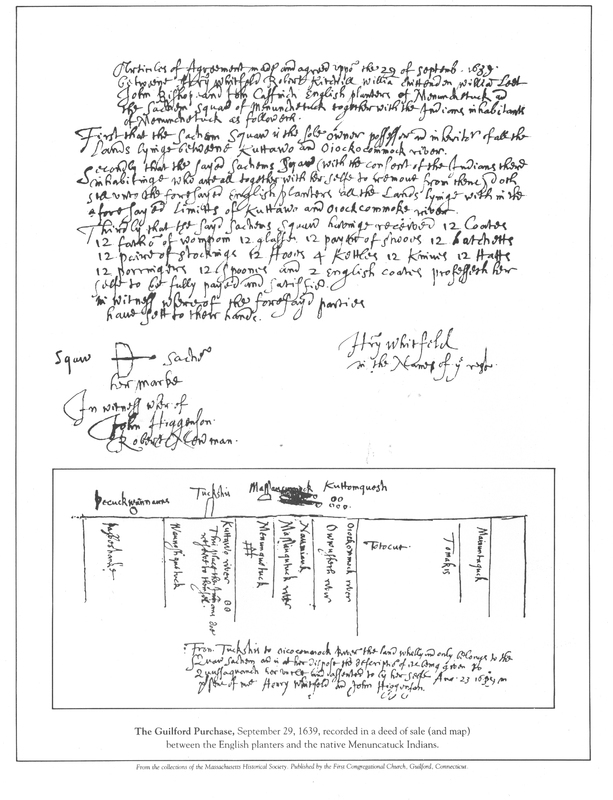 Articles of Agreement made and agreed upon the 29 of Septemb. 1639
betweene Hry Whitfeld Robert Kitchill Willia Chittenden Willia Leet
John Bishop and Caffinch English planters of Menunckatuck and
the Sachem Squaw of Menunckatuck together with the Indians inhabitants
of Menunckatuck as followeth.
First that the Sachem Squaw is the sole owner possessor and inheritor of all the
Lands lyinge betweene Kuttawo and Oiockocommock river.
Secondly that the sayd Sachem Squaw with the consent of the Indians there
inhabitinge who are all together with her selfe to remove from thence doth
sell unto the foresayed English planters all the Lands lyinge with in the
afore sayed limitts of Kuttawo and Oiockcommoke river.
Thirdly that the sayd Sachem Squaw havinge received 12 Coates
12 fatho of wompom 12 glasses 12 payer of shooes 12 hatchetts
12 paire of stockings 12 Hooes 4 Kettles 12 Knives 12 Hatts
12 porringers 12 spoones and 2 English coates professeth her
selfe to be fully payed and satisfied.
in witnes wherof the foresayd parties
have sett to their hands.
Squaw Sachem
her marke
Hry Whitfeld
in the Names of ye rest.
In witness wher of
John Higgenson.
Robert Newman.
Tuckshis Kuttomquosh
Kuttawo river
Menunquatuck
Oiockommock river
Totocut
From Tuckshis to oiococommock river the land wholly and only belongs to the
Squaw Sachem and is at her dispose the description of it being given by
and assented to by her selfe
of me Henry Whitfeld and John Higginson.
The Guilford Purchase, September 29, 1639, recorded in a deed of sale (and map)
between the English planters and the native Menuncatuck Indians.
From the collections of the Massachusetts Historical Society. Published by the First Congregational Church, Guilford, Connecticut.